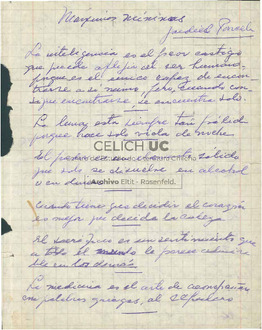 Máximas mínimas
Jardiel Poncela
La inteligencia es el peor castigo
que puede afligir al ser humano
porque es el unico capaz de encon-
trarse a si mismo, pero, cuando con-
sigue encontrarse se encuentra solo.
La luna está siempre tan pálida
porque hace solo vida de noche
CELICH UC
El pesar es un cuerpo sólido
que solo se disuelve en alcohol
o en
Archivo Eltit - Rosenfeld.
Cuando tienes que decidir el corazón
es mejor que decida la cabeza
El es un sentimiento que
a todo el mundo le parece
en los demás
La medicina es el arte de acompañar
con palabras griegas, al sepulcro